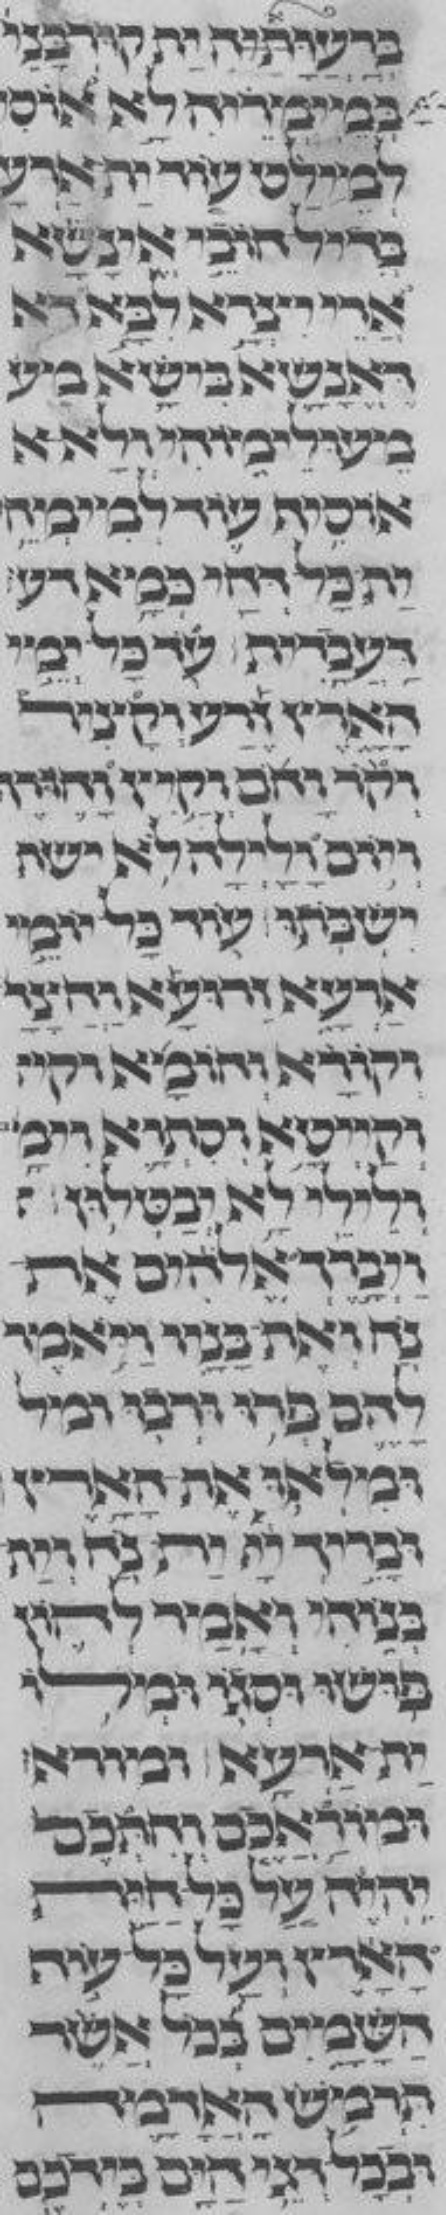 ברעותיה ית קורבניה
במיימריה לא אוסיף
למילט עוד ית ארעא
בדיל חובי אינשא
ארי ייצרא לבא דא
דאנשא בישא מיע
מיעולימוהי ולא א
אוסיף עוד לממחי
ית כל דחי כמא דע
דעבדית עד כל ימי
הארץ זרע וקציר
וקר וחם וקיץ וחורף
ויום ולילה לא ישת
ישבתו עוד כל יומי
ארעא זרועא וחצד
וקורא וחומא וקיי
וקייטא וסתוא וימ
ולילי לא יבטלון
ויברך אלהים את
נח ואת בניו ויאמר
להם פרו ורבו ומיל
ומילאו את הארץ
ובריך יי ית נח וית
בנוהי ואמר להון
פושו וסגו ומילו
ית ארעא ומורא
ומוראכם וחתכם
יהיה על כל חית
הארץ ועל כל עוף
השמים בכל אשר
תרמש האדמה
ובכל דגי הים בידכם